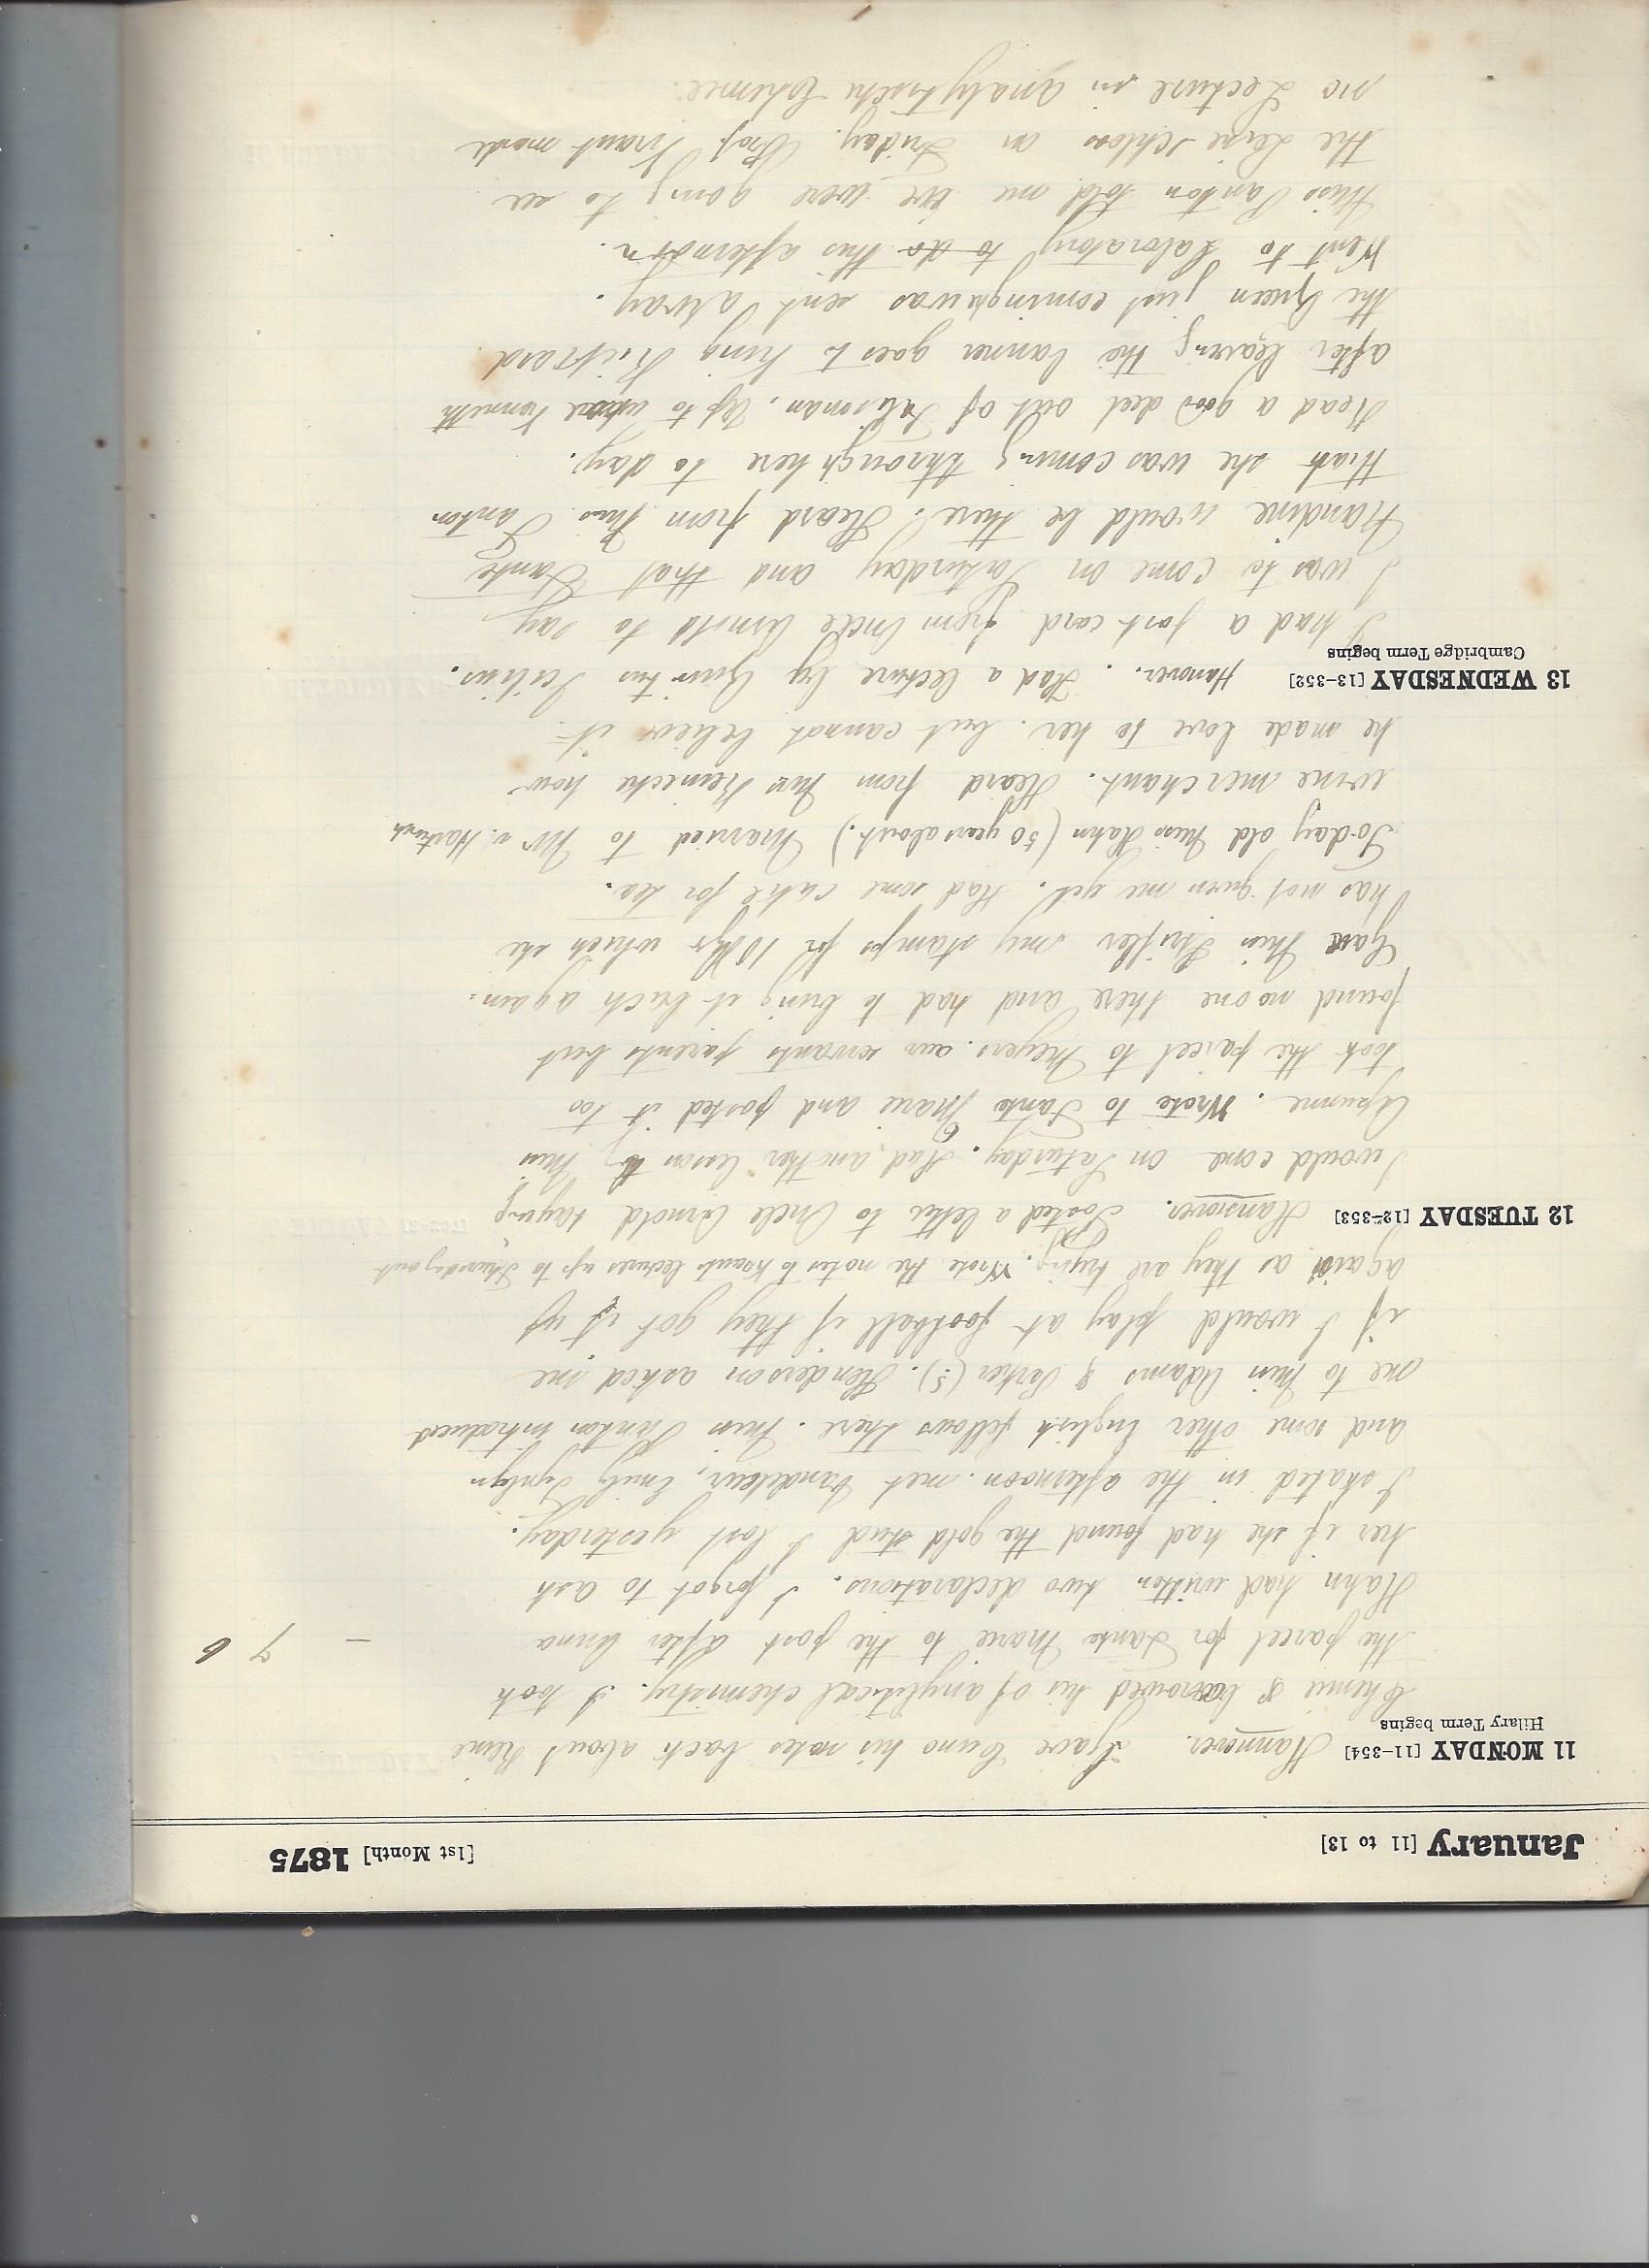 January [11 to 13] [1st Month] 1875
11 MONDAY [11–354] Hannover. Gave Cuno his notes back about Reine
Hilary Term begins
Chemie & borrowed his of anylitical chemistry. I took
the parcel for Tante Marie to the post after Anna – 7 6
Hahn had written two declarations. I forgot to ask
her if she had found the gold stud I lost yesterday.
I skated in the afternoon. met Vandeleur, Emily
and some other English fellows there. Miss Panton introduced
me to Miss Adams & Parker (?). Henderson asked me
if I would play at football if they got it up
again as they are trying. Wrote the notes to Krauts lectures up to
12 TUESDAY [12–353] Hannover. Posted a letter to Uncle Arnold saying
I would come on Saturday. Had another lesson by Miss
Wrote to Tante Marie and posted it too
took the parcel to Meyers. our servants parents but
found no one there and had to bring it back again.
Gave Miss my stamps for 10 which she
has not given me yet. Had some cake for tea.
To-day old Miss Hahn (50 years about.) Married to Mr v.
wine merchant. Heard from Mr how
he made love to her. but cannot believe it.
13 WEDNESDAY [13–352] Hanover. Had a lecture by Quintus Icilius.
Cambridge Term begins
I had a post card from Uncle Arnold to say
I was to come on Saturday and that Tante
Nandine would be there. Heard from Miss Panton
that she was coming through here to day.
Read a good deel out of Talisman. Up to where Kenneth
after leaving the banner goes to King Richard
the Queen just coming & was sent away.
Went to Laboratory to do this afternoon.
Miss Panton told me we were going to see
the Leine Schloss on Friday. Prof Kraut made
no Lecture in Analytische Chemie.